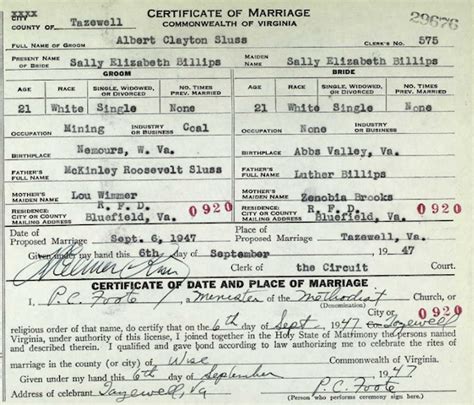 XXXX
CITY
COUNTY OF Tazewell
CERTIFICATE OF MARRIAGE
COMMONWEALTH OF VIRGINIA
29676
FULL NAME OF GROOM Albert Clayton Sluss CLERK'S NO. 575
PRESENT NAME OF BRIDE Sally Elizabeth Billips MAIDEN NAME Sally Elizabeth Billips
GROOM BRIDE
AGE RACE SINGLE, WIDOWED, OR DIVORCED NO. TIMES PREV. MARRIED AGE RACE SINGLE, WIDOWED, OR DIVORCED NO. TIMES PREV. MARRIED
21 White Single None 21 White Single None
OCCUPATION Mining INDUSTRY OR BUSINESS Coal OCCUPATION None INDUSTRY OR BUSINESS
BIRTHPLACE Nemours, W. Va. BIRTHPLACE Abbs Valley, Va.
FATHER'S FULL NAME McKinley Roosevelt Sluss FATHER'S FULL NAME Luther Billips
MOTHER'S MAIDEN NAME Lou Wimmer MOTHER'S MAIDEN NAME Zenobia Brooks
RESIDENCE: CITY OR COUNTY MAILING ADDRESS R. F. D. Bluefield, Va. 0920 RESIDENCE: CITY OR COUNTY MAILING ADDRESS R. F. D. Bluefield, Va. 0920
Date of Proposed Marriage Sept. 6, 1947 Place of Proposed Marriage Tazewell, Va.
Given under my hand this 6th day of September 1947
Clerk of the Circuit Court
CERTIFICATE OF DATE AND PLACE OF MARRIAGE
I, P.C. Foote, a Minister of the Methodist Church, or
(Denomination) City or 0920
religious order of that name, do certify that on the 6th day of Sept. 1947 Co. Tazewell
Virginia, under authority of this license, I joined together in the Holy State of Matrimony the persons named
and described therein. I qualified and gave bond according to law authorizing me to celebrate the rites
of marriage in the county (or city) of Wise Commonwealth of Virginia.
Given under my hand this 6th day of September 1947.
Address of celebrant Tazewell, Va P.C. Foote
(Person who performs ceremony sign here)